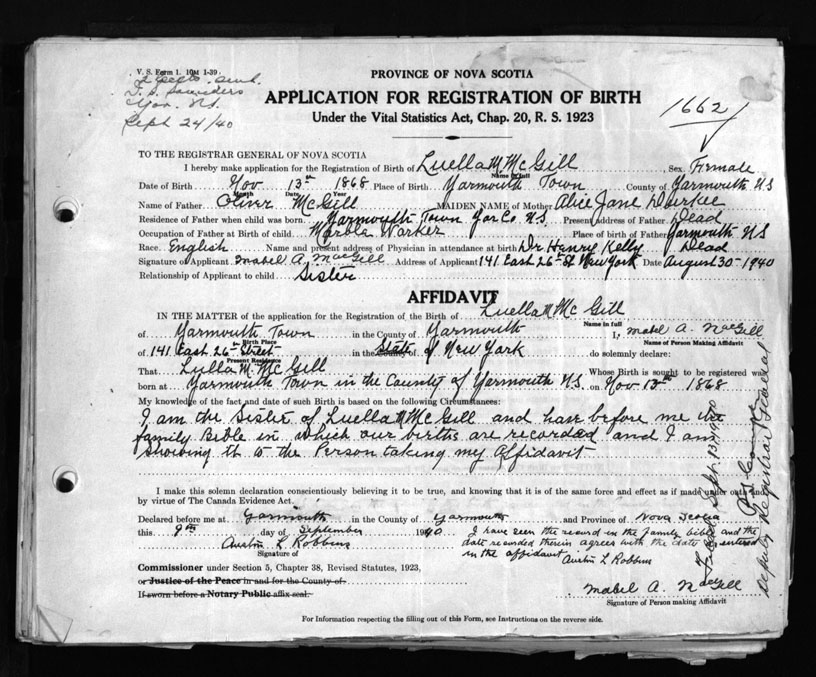 V. S. Form 1. 10M 1-39
2 certs. sent.
T. S. Saunders
Yar. N.S.
Sept 24/40
PROVINCE OF NOVA SCOTIA
APPLICATION FOR REGISTRATION OF BIRTH
Under the Vital Statistics Act, Chap. 20, R. S. 1923
1662
TO THE REGISTRAR GENERAL OF NOVA SCOTIA
I hereby make application for the Registration of Birth of Luella M. McGill Sex Female
Name in full
Date of Birth Nov 13th 1868 Place of Birth Yarmouth Town County of Yarmouth N S
Month Date Year
Name of Father Oliver McGill MAIDEN NAME of Mother Alice Jane Durkee
Residence of Father when child was born Yarmouth Town Yar Co. N.S. Present address of Father Dead
Occupation of Father at Birth of child Marble Worker Place of birth of Father Yarmouth N S
Race English Name and present address of Physician in attendance at birth Dr Henry Kelly Dead
Signature of Applicant Mabel A. MacGill Address of Applicant 141 East 26th St New York Date August 30-1940
Relationship of Applicant to child Sister
AFFIDAVIT
IN THE MATTER of the application for the Registration of the Birth of Luella M McGill
Name in full
of Yarmouth Town in the County of Yarmouth I, Mabel A. MacGill
Birth Place Name of Person Making Affidavit
of 141 East 26th Street in the County State of New York do solemnly declare:
Present Residence
That Lulla M. McGill Whose Birth is sought to be registered was
born at Yarmouth Town in the County of Yarmouth N.S. on Nov 13th 1868
My knowledge of the fact and date of such Birth is based on the following Circumstances:
I am the Sister of Luella M McGill and have before me the
family Bible in which our births are recorded and I am
showing th to the Person taking my Affidavit
I make this solemn declaration conscientiously believing it to be true, and knowing that it is of the same force and effect as if made under oath and
by virtue of The Canada Evidence Act.
Declared before me at Yarmouth in the County of Yarmouth and Province of Nova Scotia
this 9th day of September 1940
I have seen the record in the family bible and the
date recorded therein agrees with the date as entered
in the affidavit Austin L Robbins
Austin L Robbins
Signature of
Commissioner under Section 5, Chapter 38, Revised Statutes, 1923,
or Justice of the Peace in and for the County of
If sworn before a Notary Public affix seal.
Mabel A. MacGill
Signature of Person making Affidavit
For Information respecting the filling out of this Form, see Instructions on the reverse side.
Filed Sept. 13, 1940
Deputy Registrar General